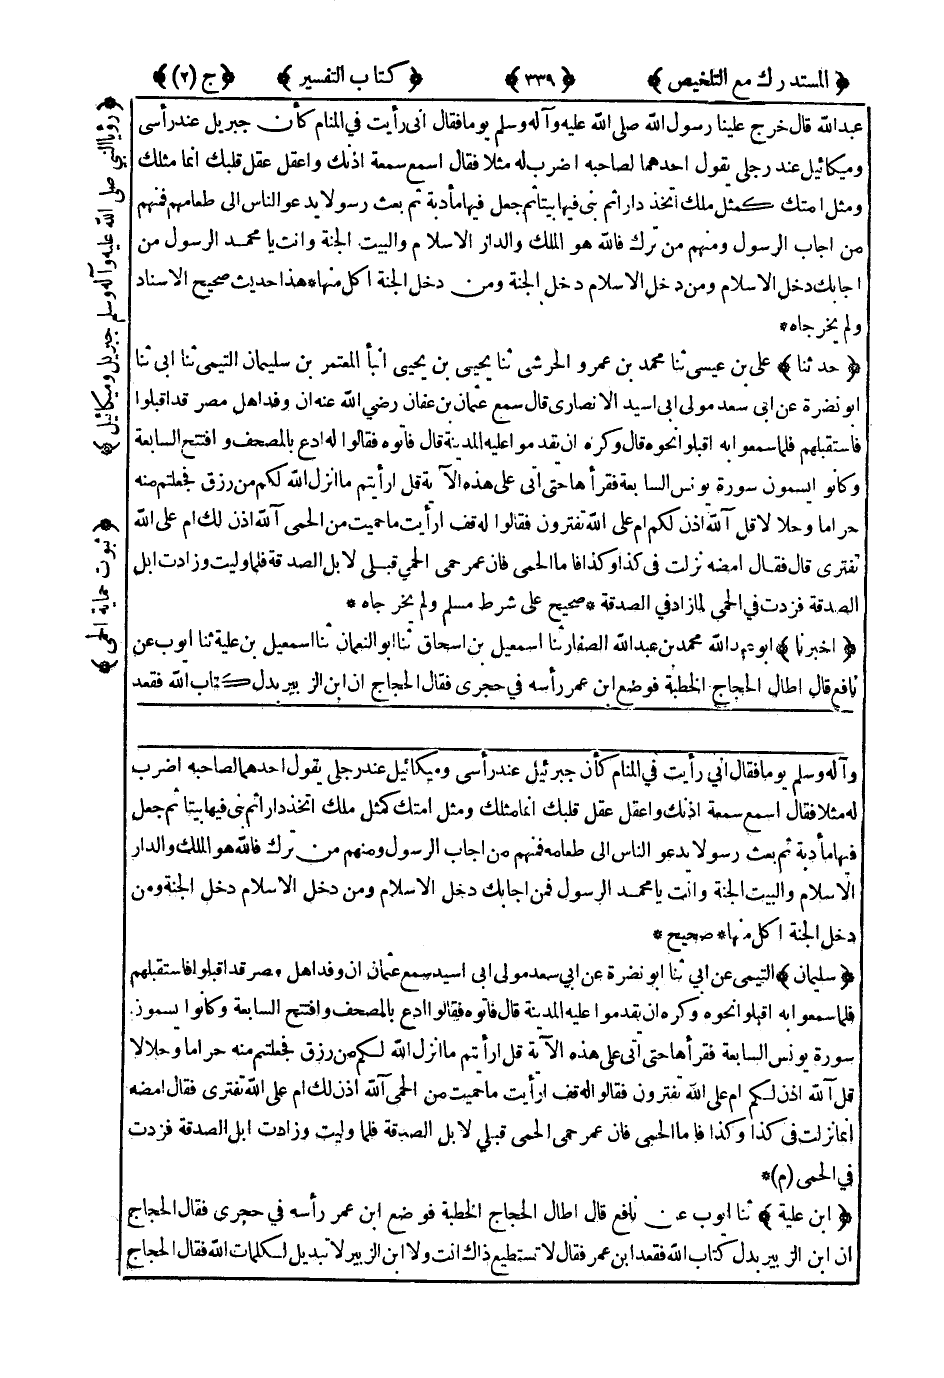 ﴿ المستدرك مع التلخيص ﴾ ﴿ ٣٣٩ ﴾ ﴿ كتاب التفسير ﴾ ﴿ ج (٢) ﴾
عبدالله قال خرج علينا رسول الله صلى الله عليه وآله وسلم يوما فقال انى رأيت في المنام كأن جبريل عند رأسى
وميكائيل عند رجلى يقول احدهما لصاحبه اضرب له مثلا فقال اسمع سمعة اذنك واعقل عقل قلبك انما مثلك
ومثل امتك كمثل ملك اتخذ دارا ثم بنى فيها بيتا ثم جعل فيها مأدبة ثم بعث رسولا يدعو الناس الى طعامهم فمنهم
من اجاب الرسول ومنهم من ترك فالله هو الملك والدار الاسلام والبيت الجنة وانت يا محمد الرسول من
اجابك دخل الاسلام ومن دخل الاسلام دخل الجنة ومن دخل الجنة اكل منها * هذا حديث صحيح الاسناد
ولم يخرجاه *
﴿ حدثنا ﴾ على بن عيسى ثنا محمد بن عمرو الحرشى ثنا يحيى بن يحيى انبأ المعتمر بن سليمان التيمى ثنا ابى ثنا
ابو نضرة عن ابى سعد مولى ابى اسيد الانصارى قال سمع عثمان بن عفان رضي الله عنه ان وفد اهل مصر قد اقبلوا
فاستقبلهم فلما سمعوا به اقبلوا نحوه قال وكره ان يقدموا عليه المدينة قال فاتوه فقالوا له ادع بالمصحف وافتتح السابعة
وكانوا يسمون سورة يونس السابعة فقرأها حتى اتى على هذه الآية قل ارأيتم ما انزل الله لكم من رزق فجعلتم منه
حراما وحلالا قل آلله اذن لكم ام على الله تفترون فقالوا له قف ارأيت ما حميت من الحمى آلله اذن لك ام على الله
تفترى قال فقال امضه نزلت فى كذا وكذا فاما الحمى فان عمر حمى الحمي قبلى لابل الصدقة فلما وليت وزادت ابل
الصدقة فزدت في الحمي لما زاد في الصدقة * صحيح على شرط مسلم ولم يخرجاه *
﴿ اخبرنا ﴾ ابو عبدالله محمد بن عبدالله الصفار ثنا اسمعيل بن اسحاق ثنا ابو النعمان ثنا اسمعيل بن علية ثنا ايوب عن
نافع قال اطال الحجاج الخطبة فوضع ابن عمر رأسه في حجرى فقال الحجاج ان ابن الزبير بدل كتاب الله فقعد
﴿ رؤيا النبي صلى الله عليه وآله وسلم جبريل وميكائيل ﴾
﴿ ثبوت حماية الحمى ﴾
وآله وسلم يوما فقال انى رأيت في المنام كأن جبرئيل عند رأسى وميكائيل عند رجلى يقول احدهما لصاحبه اضرب
له مثلا فقال اسمع سمعة اذنك واعقل عقل قلبك انما مثلك ومثل امتك كمثل ملك اتخذ دارا ثم بنى فيها بيتا ثم جعل
فيها مأدبة ثم بعث رسولا يدعو الناس الى طعامه فمنهم من اجاب الرسول ومنهم من ترك فالله هو الملك والدار
الاسلام والبيت الجنة وانت يا محمد الرسول فمن اجابك دخل الاسلام ومن دخل الاسلام دخل الجنة ومن
دخل الجنة اكل منها * صحيح *
﴿ سليمان ﴾ التيمى عن ابى ثنا ابو نضرة عن ابي سعد مولى ابى اسيد سمع عثمان ان وفد اهل مصر قد اقبلوا فاستقبلهم
فلما سمعوا به اقبلوا نحوه وكره ان يقدموا عليه المدينة قال فاتوه فقالوا ادع بالمصحف وافتتح السابعة وكانوا يسمون
سورة يونس السابعة فقرأها حتى اتى على هذه الآية قل ارأيتم ما انزل الله لكم من رزق فجعلتم منه حراما وحلالا
قل آلله اذن لكم ام على الله تفترون فقالوا له قف ارأيت ما حميت من الحمى آلله اذن لك ام على الله تفترى فقال امضه
انما نزلت فى كذا وكذا فاما الحمى فان عمر حمى الحمى قبلي لابل الصدقة فلما وليت وزادت ابل الصدقة فزدت
في الحمى (م) *
﴿ ابن علية ﴾ ثنا ايوب عن نافع قال اطال الحجاج الخطبة فوضع ابن عمر رأسه في حجرى فقال الحجاج
ان ابن الزبير بدل كتاب الله فقعد ابن عمر فقال لا تستطيع ذاك انت ولا ابن الزبير لا تبديل لكلمات الله فقال الحجاج